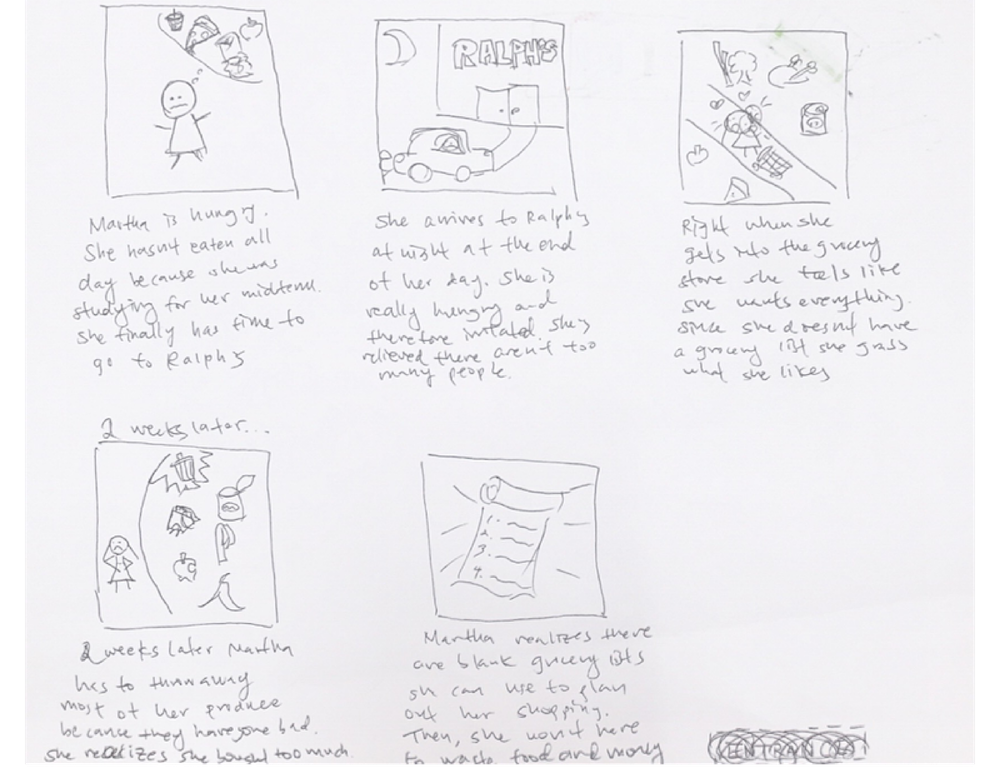 RALPH'S
Martha is hungry.
She hasn't eaten all
day because she was
studying for her midterm.
She finally has time to
go to Ralph's
She arrives to Ralph's
at night at the end
of her day. She is
really hungry and
therefore irritated. She's
relieved there aren't too
many people.
Right when she
gets into the grocery
store she feels like
she wants everything.
Since she doesn't have
a grocery list she
what she likes
2 weeks later...
1.
2.
3.
4.
2 weeks later Martha
has to throw away
most of her produce
because they have gone bad.
She realizes she bought too much.
Martha realizes there
are blank grocery lists
she can use to plan
out her shopping.
Then, she won't have
to waste food and money